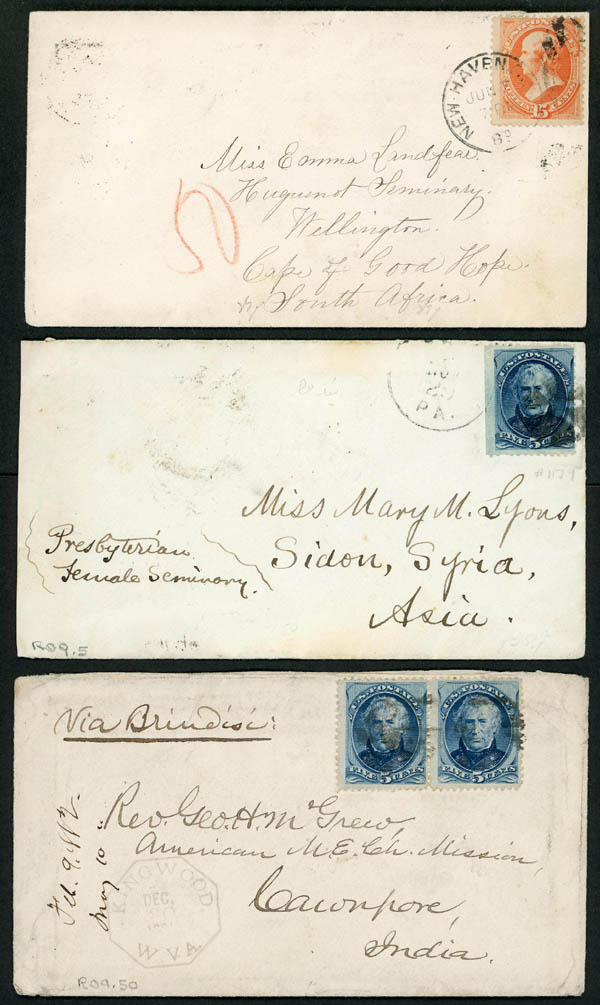 NEW HAVEN
JUN
15 CENTS
Miss Emma Landfear
Huguenot Seminary.
Wellington.
Cape of Good Hope.
South Africa.
U.S. POSTAGE
FIVE 5 CENTS
PA.
#1179
Miss Mary M. Lyons,
Sidon, Syria,
Asia.
Presbyterian
Female Seminary.
R09.5
Via Brindisi:
U.S. POSTAGE
FIVE 5 CENTS
U.S. POSTAGE
FIVE 5 CENTS
Rev. Geo. H. McGrew,
American M.E. Ch. Mission,
Cawnpore,
India.
KINGWOOD.
DEC.
W.VA.
R09.50